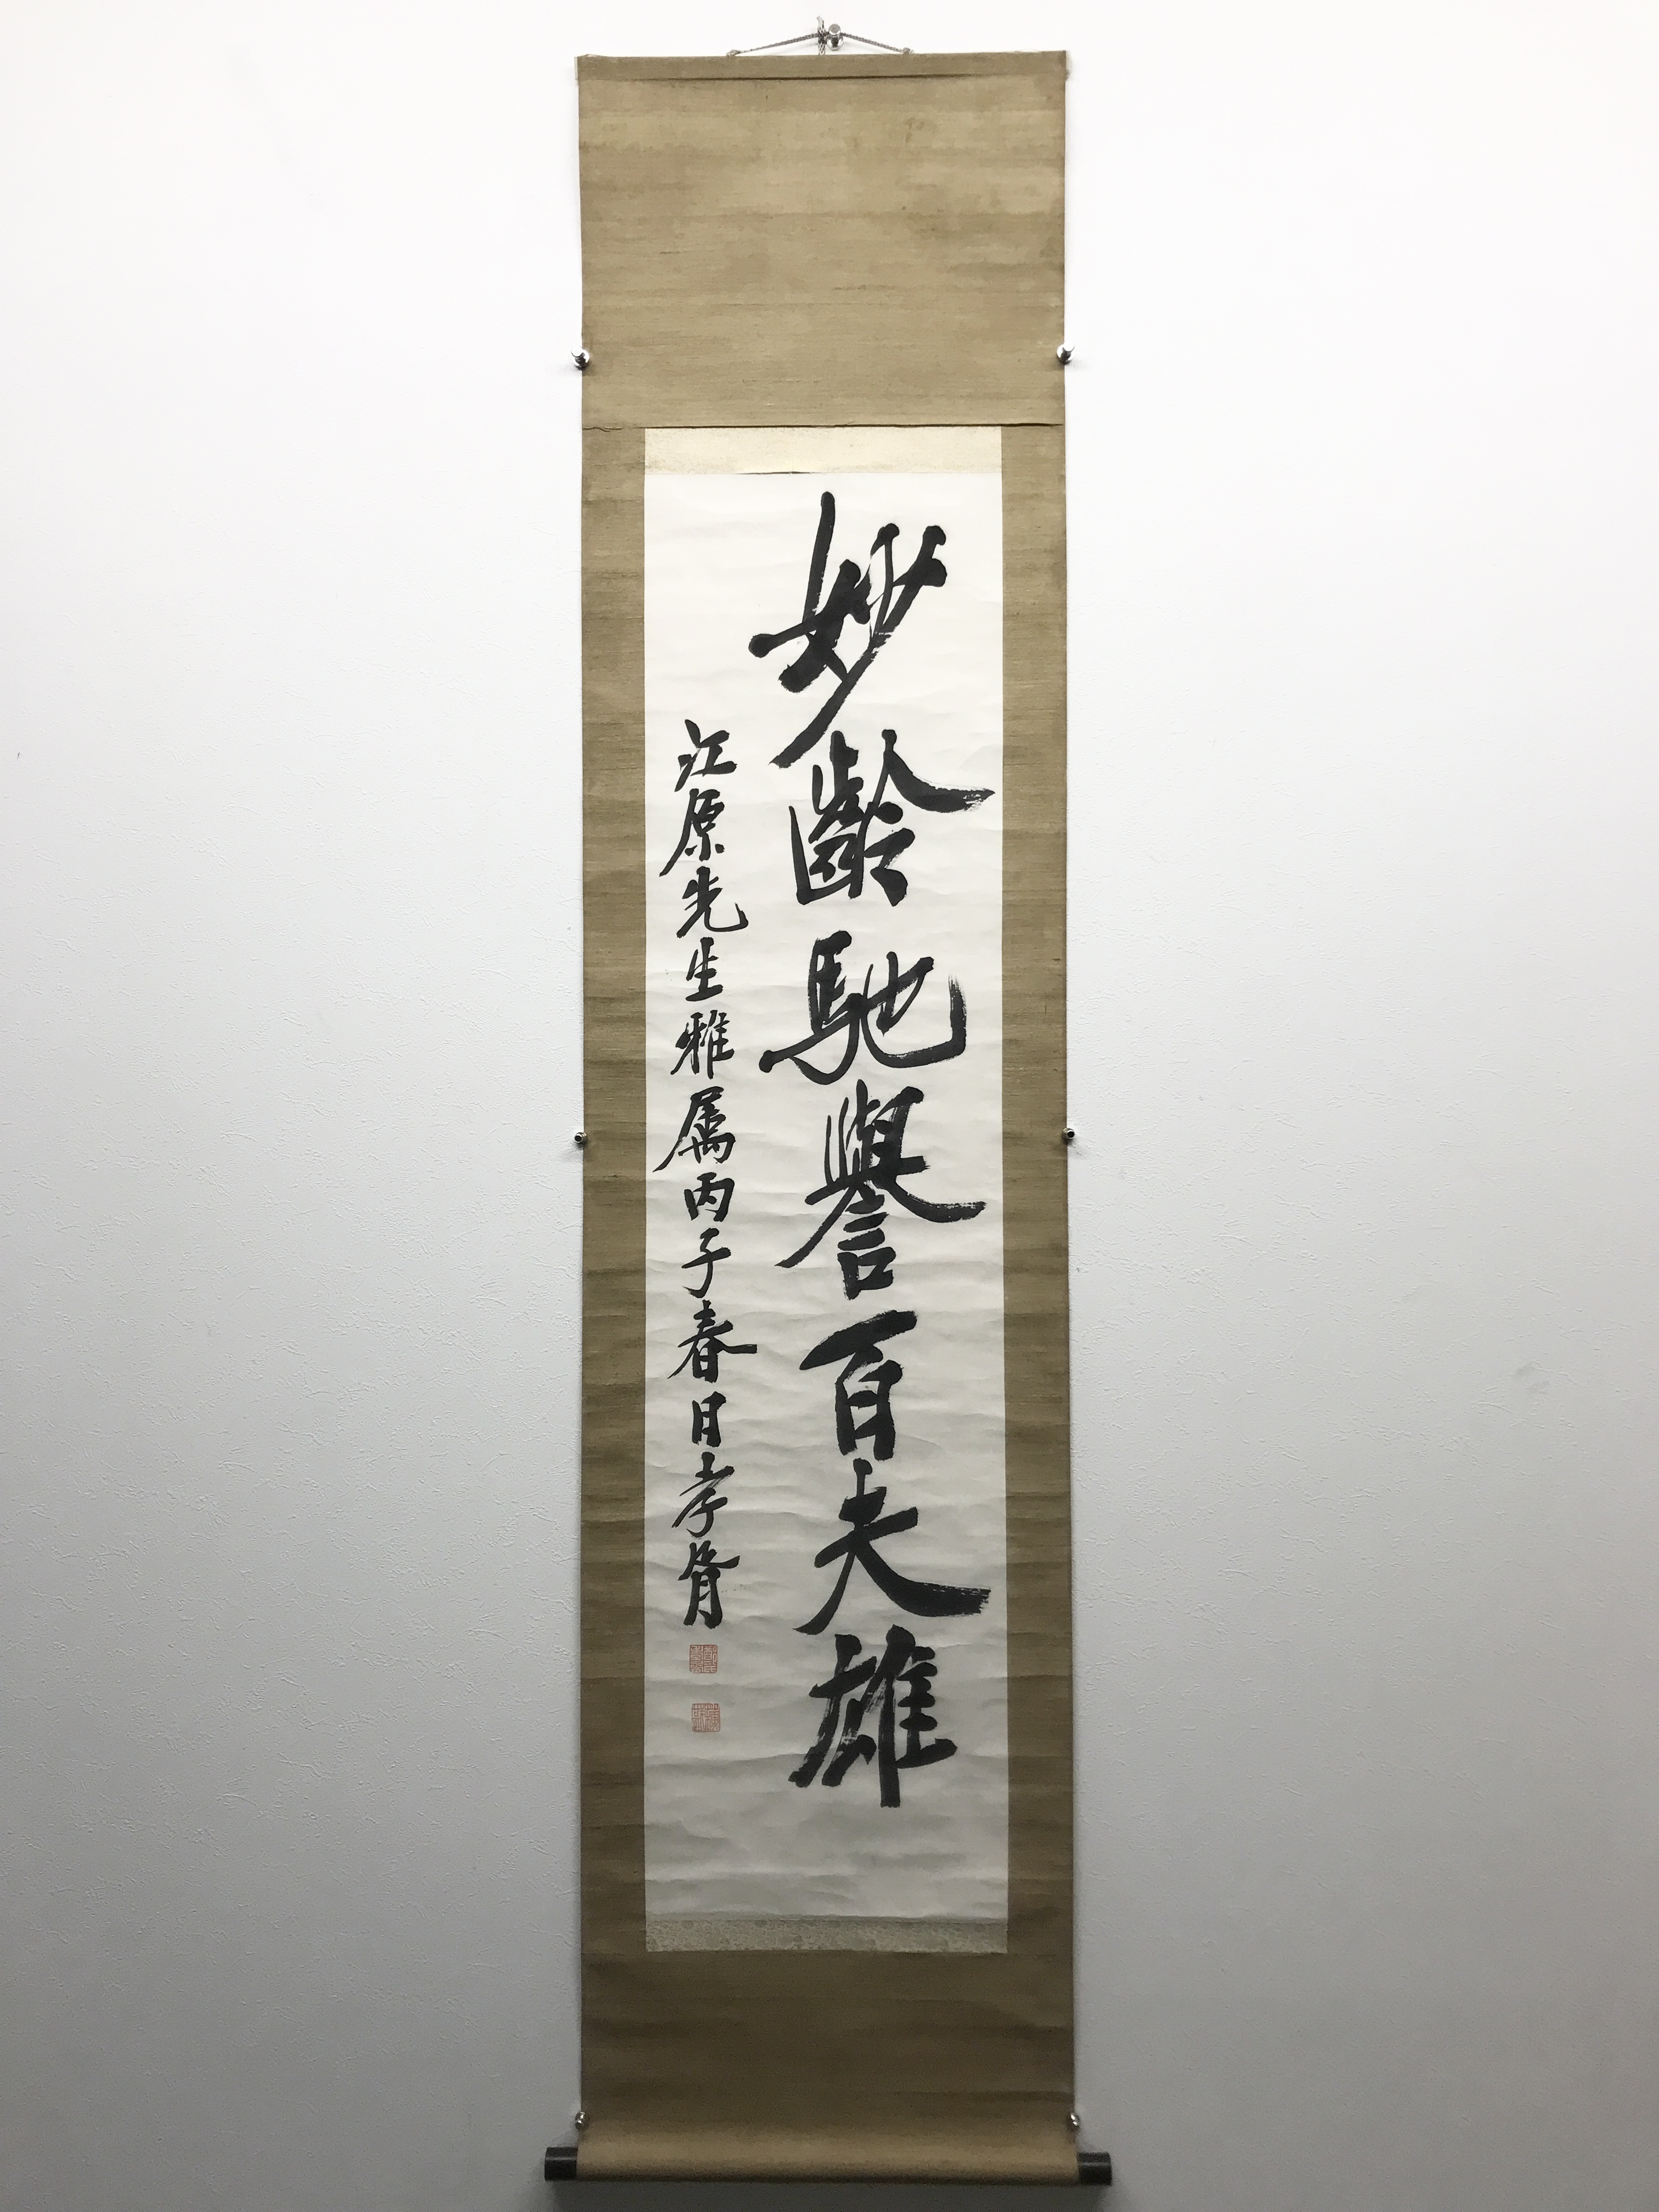 妙齡馳譽百夫雄
江原先生雅属丙子春日孝胥